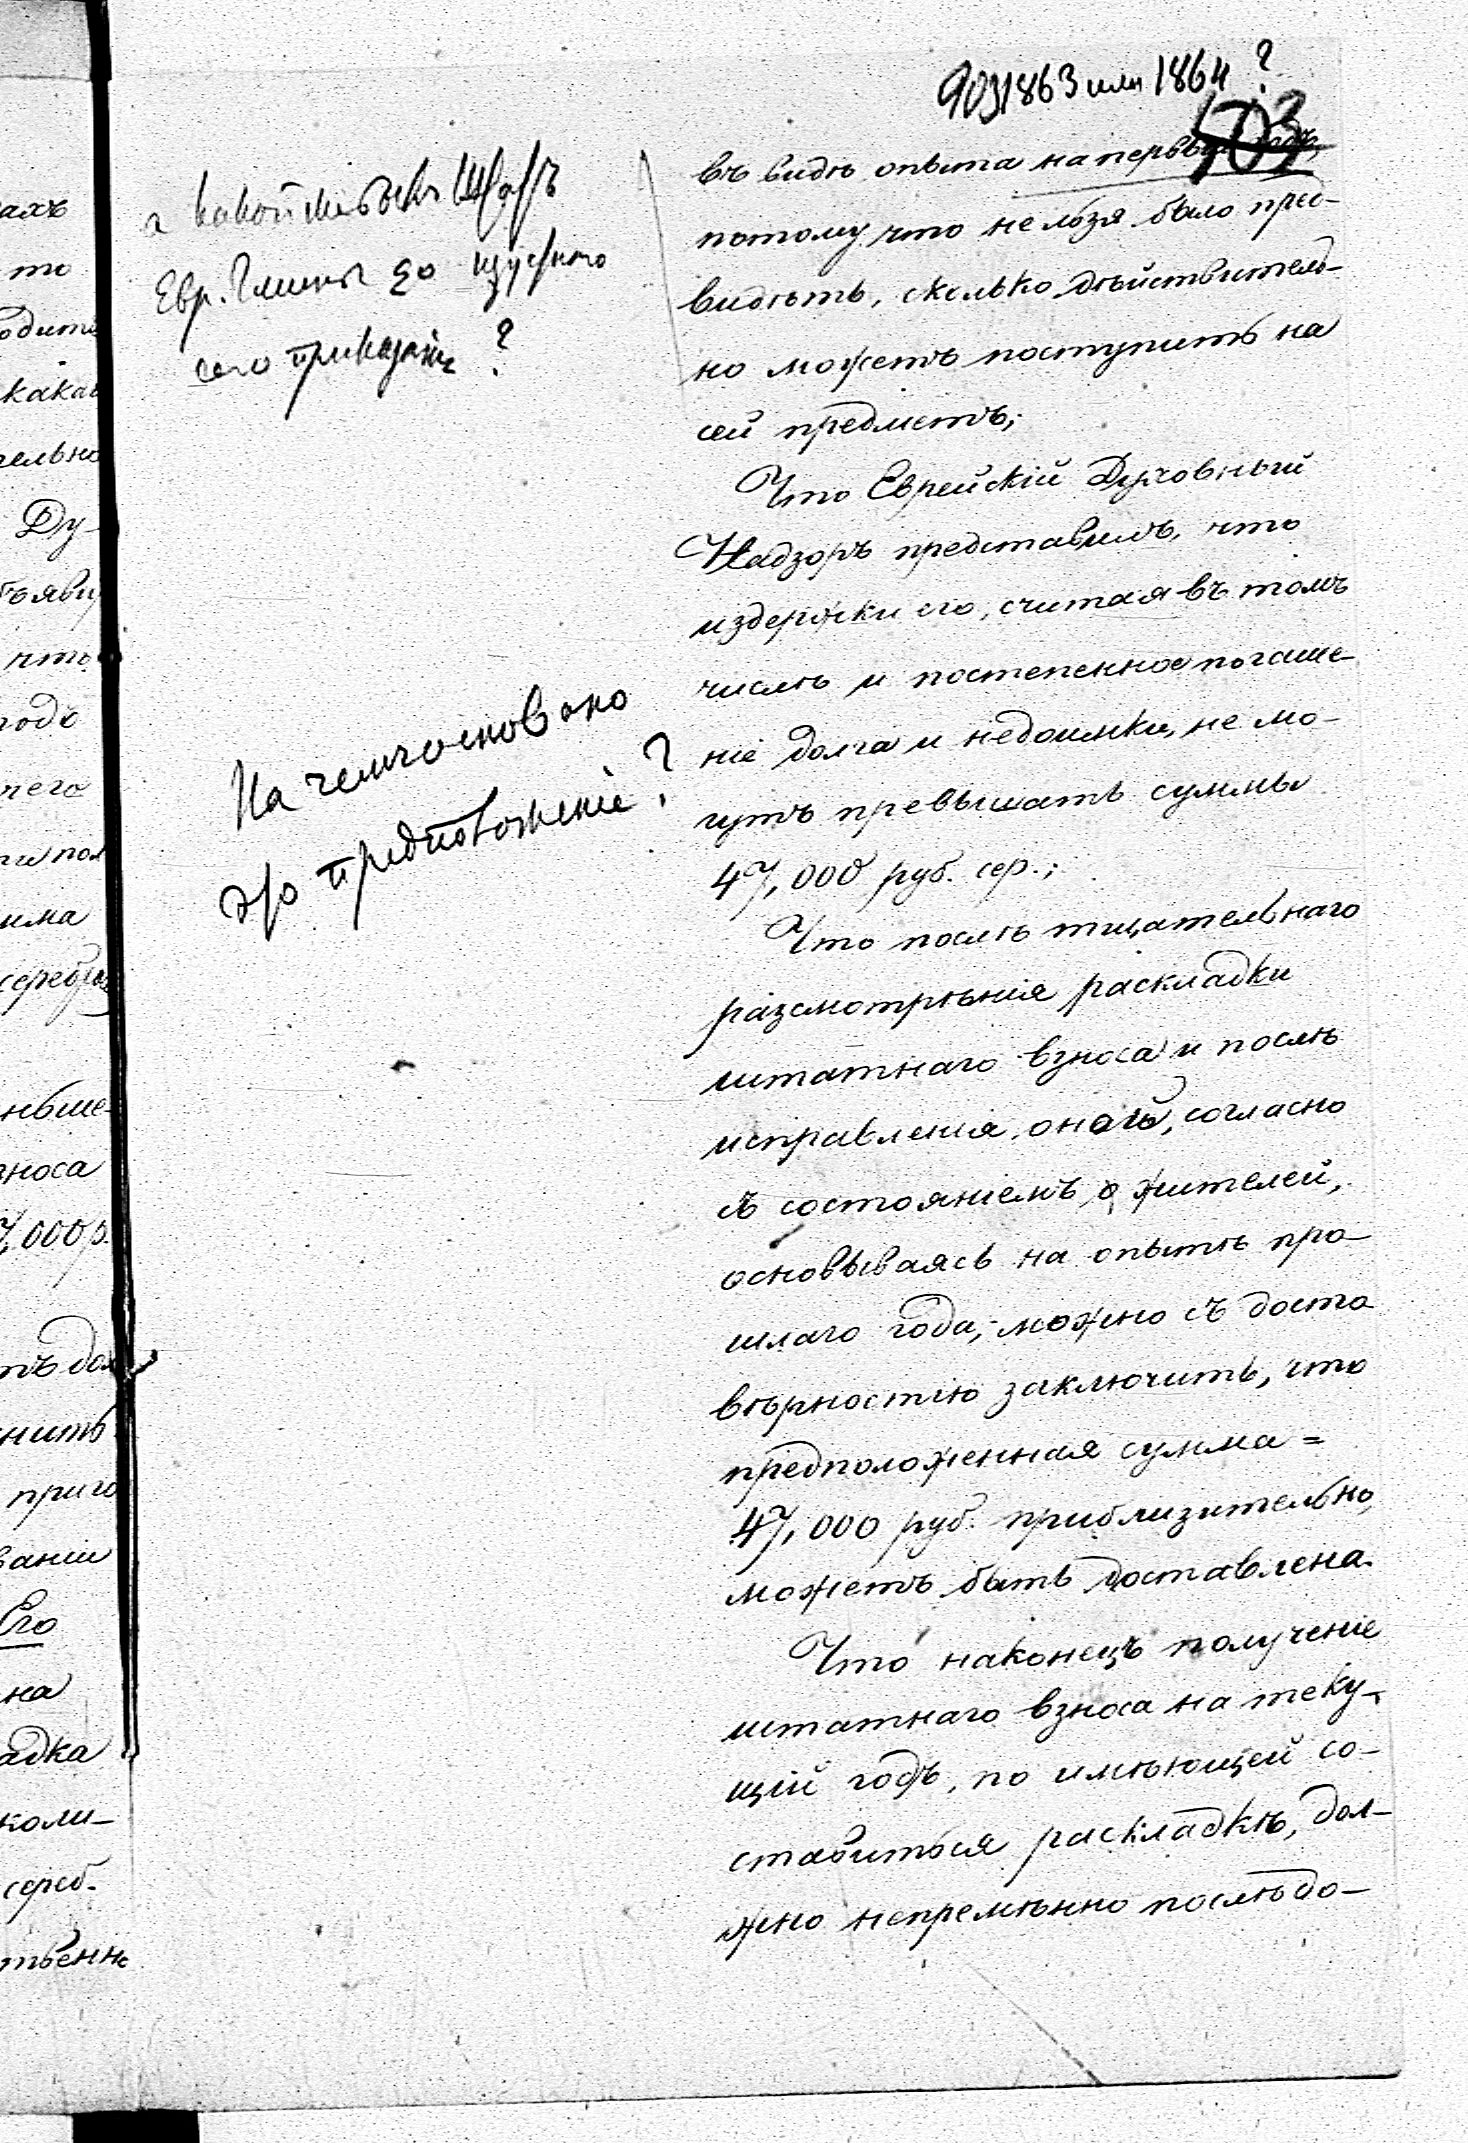 903 1863 или 1864?
503
въ видѣ опыта на первый годъ,
потому что нельзя было пред-
видѣть, сколько дѣйствитель-
но можетъ поступить на
сей предметъ;
Что Еврейскій Духовный
Надзоръ представилъ, что
издержки его, считая въ томъ
числѣ и постепенное погаше-
ніе долга и недоимки, не мо-
гутъ превышать суммы
47,000 руб. сер.;
Что послѣ тщательнаго
разсмотрѣнія раскладки
штатнаго взноса и послѣ
исправленія оной, согласно
съ состояніемъ жителей,
основываясь на опытѣ про-
шлаго года, можно съ досто
вѣрностію заключить, что
предположенная сумма =
47,000 руб. приблизительно,
можетъ быть доставлена.
Что наконецъ полученіе
штатнаго взноса на теку-
щій годъ, по имѣющей со-
ставиться раскладкѣ, дол-
жно непремѣнно послѣдо-
а какой же былъ штатъ
Евр. Гмины до
сего приказанія?
На чемъ основано
это предположеніе?
ахъ
то
одить
какая
тельно
Ду-
что
годъ
него
пол
има
ньше-
зноса
7,000 р.
нить
приго
ваніи
Его
на
адка
коли-
сереб.
твенн